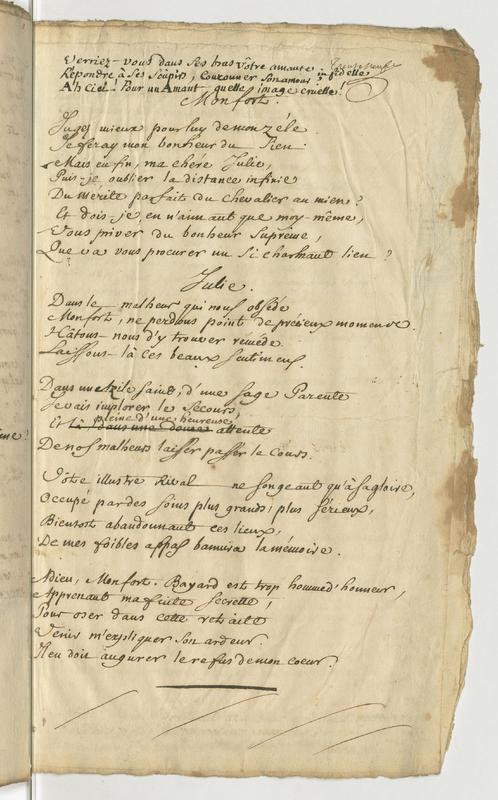 Verriez-vous dans ses bras vôtre amante infidelle
Répondre à ses soupirs, couronner son amour ?
Ah Ciel ! Pour un Amant quelle image cruelle !
Monfort.
Jugez mieux pour luy de mon zéle
Je feray mon bonheur du Sien.
Mais enfin, ma chére Julie,
Puis-je oublier la distance infinie
Du mérite parfait du Chevalier au mien ?
Et dois-je, en n'aimant que moy-même,
Vous priver du bonheur Suprême,
Que va vous procurer un Si charmant lien ?
Julie.
Dans le malheur qui nous obséde
Monfort, ne perdons point de précieux momens.
Hâtons-nous d'y trouver reméde
Laissons-là ces beaux sentimens.
Dans un Azile saint, d'une sage Parente
Je vais implorer le secours,
pleine d'une heureuse
Et là dans une douce attente
De nos malheurs laisser passer le cours.
Vôtre illustre Rival ne songeant qu'à sa gloire,
Occupé par des soins plus grands, plus sérieux,
Bientost abandonnant ces lieux,
De mes foibles appas bannira la mémoire.
Adieu, Monfort. Bayard est trop homme d'honneur,
Apprenant ma fuite secrette,
Pour oser dans cette retraite
Venir m'expliquer son ardeur.
Il en doit augurer le refus de mon coeur.